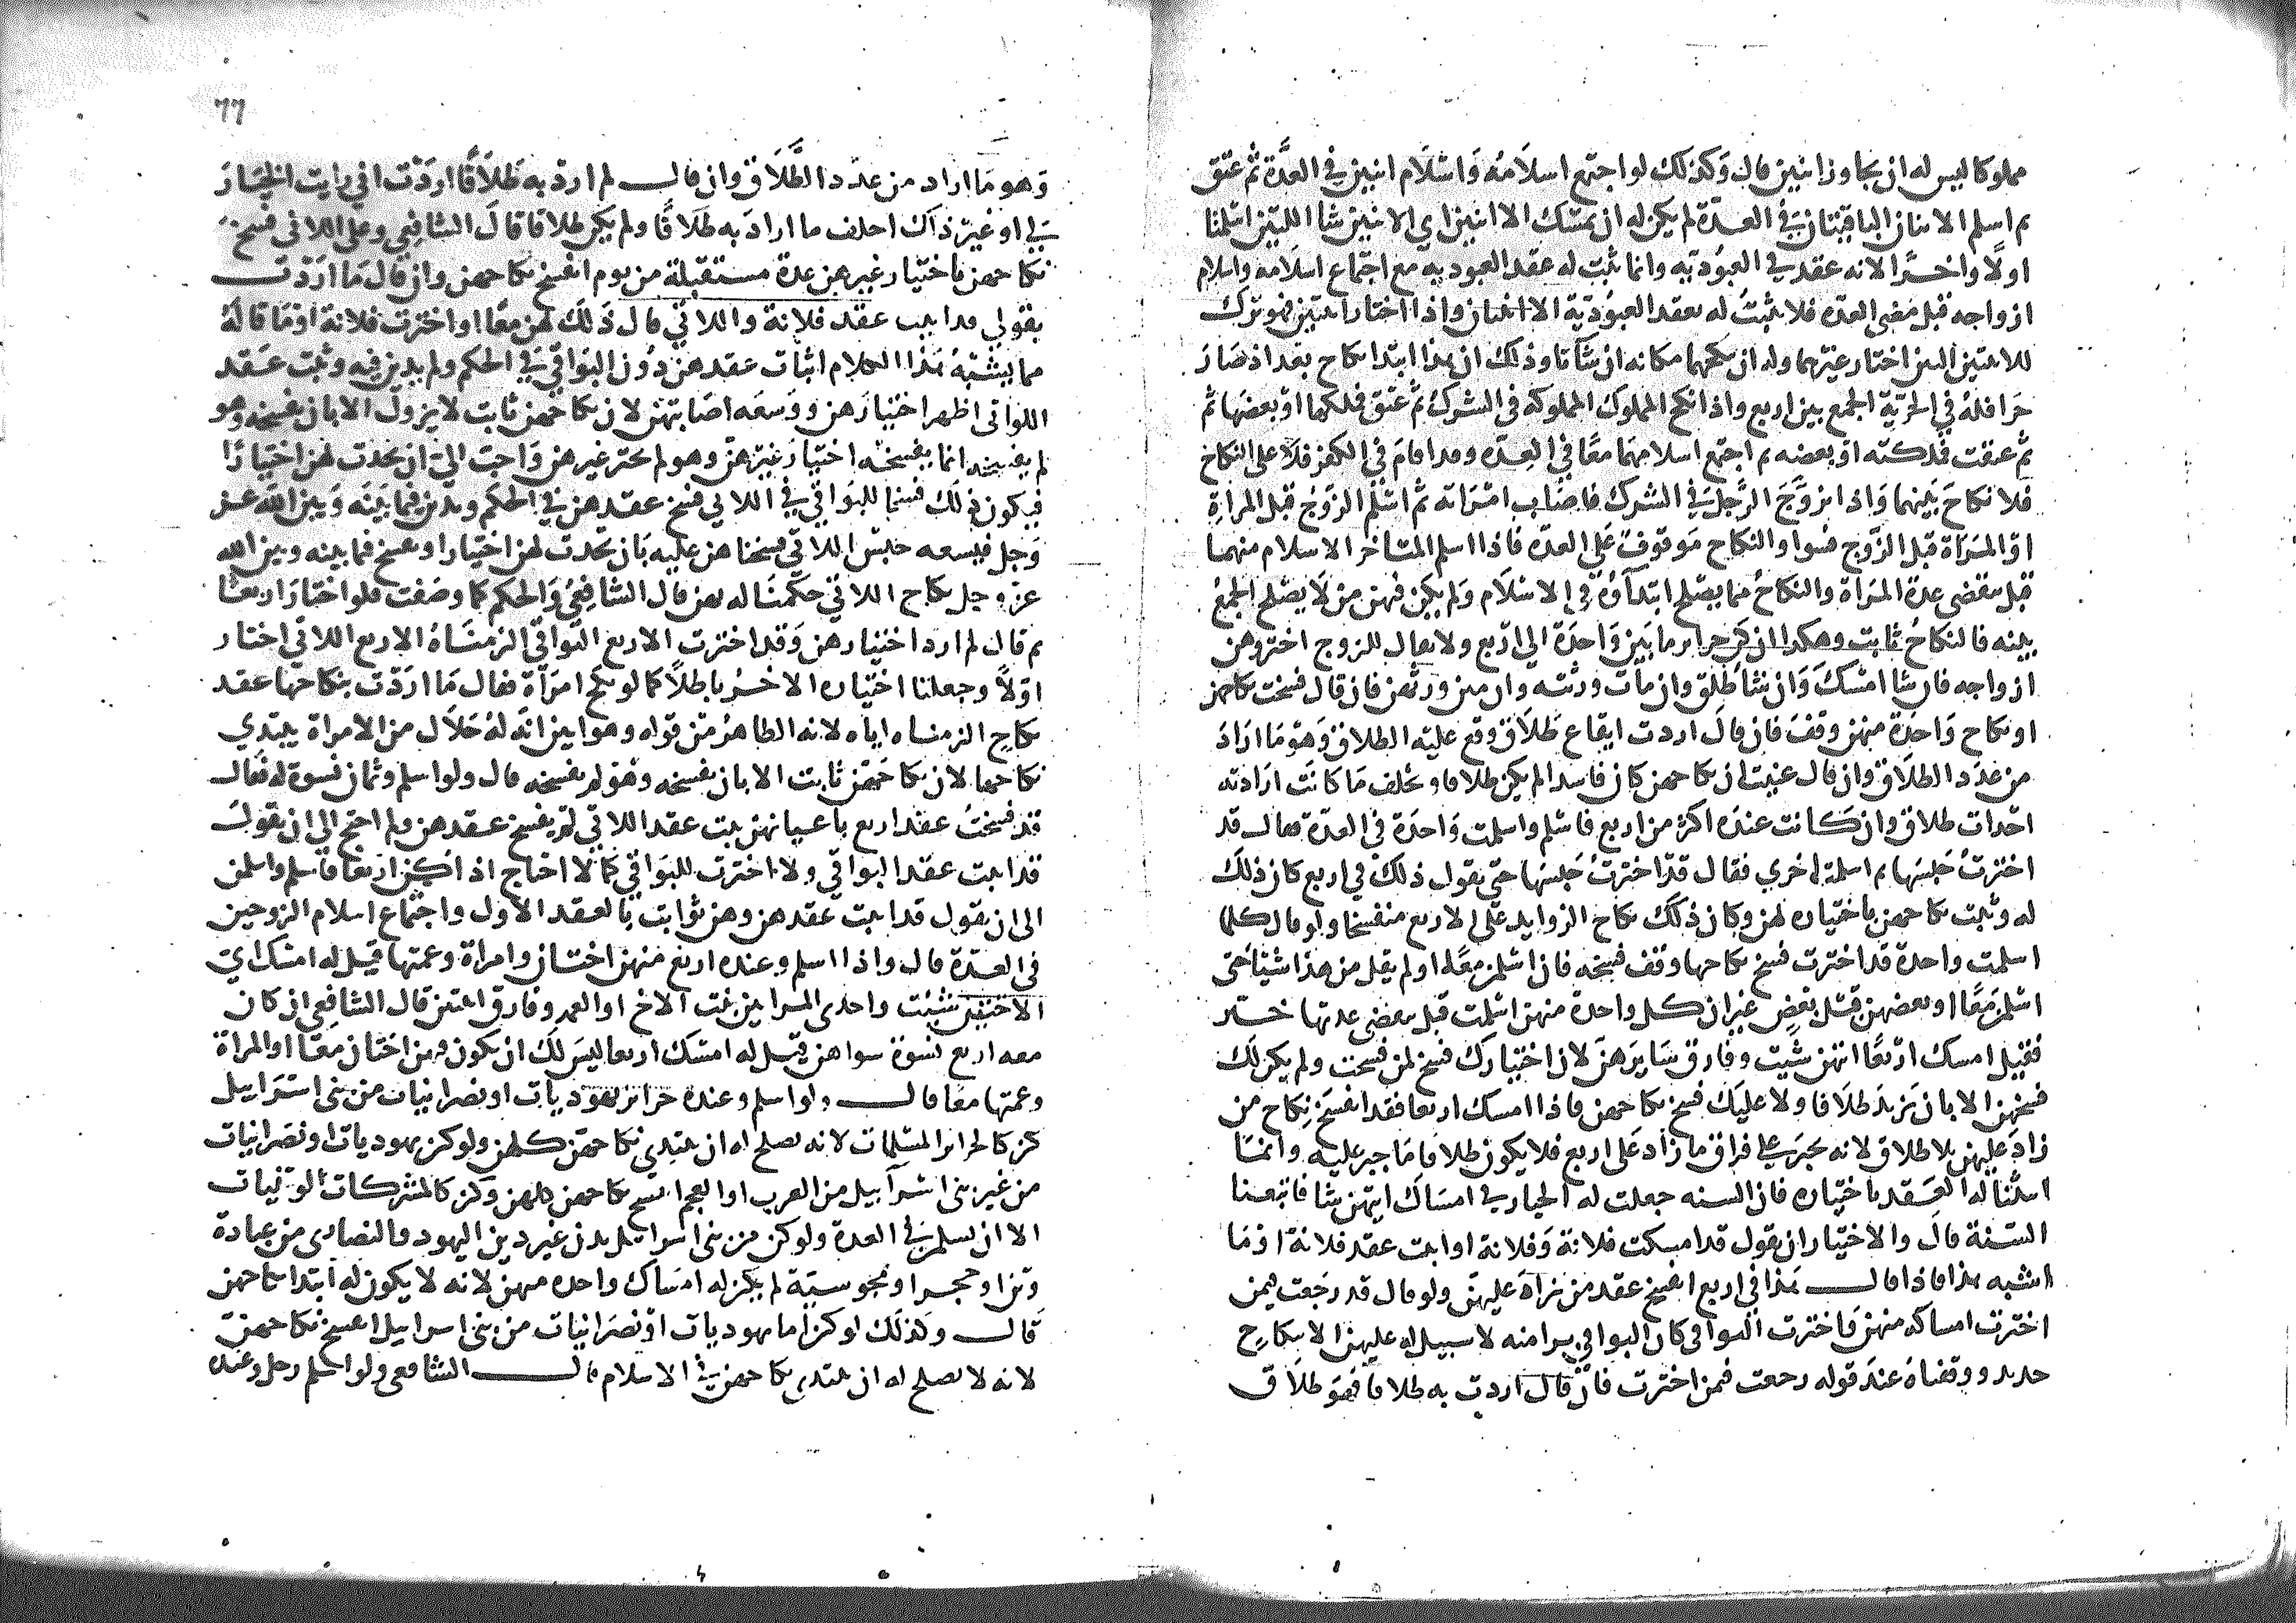 مملوكا ليس له ان يجاوز اثنين قال وكذلك لو اجتمع اسلامه واسلام اثنين في العدة ثم عتق
ثم اسلم الاثنتان الباقيتان في العدة لم يكن له ان يمسك الا اثنين اي الاثنين شا اللتين اسلمتا
اولا واخرا لانه عقد في العبوديه وانما يثبت له عقد العبوديه مع اجتماع اسلامه واسلام
ازواجه قبل مضي العده فلا يثبت له بعقد العبودية الا اثنتان واذا اختار اثنتين فهو ترك
للاثنتين اللتين اختار غيرهما وله ان ينكحهما مكانه ان شاتا وذلك ان هذا ابتدا نكاح بعد اذ صار
حرا فله في الحرية الجمع بين اربع واذا نكح المملوك المملوكه في الشرك ثم عتق فملكها او بعضها ثم
ثم عتقت فملكته او بعضه ثم اجتمع اسلامهما معا في العده وقد اقام في الكفر فلا على النكاح
فلا نكاح بينهما واذا تزوج الرجل في الشرك فاصاب امراته ثم اسلم الزوج قبل المراة
او المراة قبل الزوج فسوا والنكاح موقوف على العده فاذا اسلم المتاخر الاسلام منهما
قبل تنقضي عدة المراة والنكاح مما يصلح ابتداؤه في الاسلام ولم يكن فيهن من لا يصلح الجمع
بينه فالنكاح ثابت وهكذا ان كن حراير ما بين واحدة الى اربع ولا يقال للزوج اختر وهن
ازواجه فان شا امسك وان شا طلق وان مات ورثنه وان متن ورثهن فان قال فسخت نكاحهن
او نكاح واحدة منهن وقف فان قال اردت ايقاع طلاق وقع عليه الطلاق وهو ما اراد
من عدد الطلاق وان قال عنيت ان نكاحهن كان فاسدا لم يكن طلاقا ويحلف ما كانت ارادته
احداث طلاق وان كانت عنده اكثر من اربع فاسلم واسلمت واحدة في العدة فقال قد
اخترت حبسها ثم اسلمت اخري فقال قد اخترت حبسها حتى يقول ذلك في اربع كان ذلك
له وثبت نكاحهن باختياره لهن وكان ذلك نكاح الزوايد على الاربع منفسخا ولو قال كلما
اسلمت واحدة قد اخترت فسخ نكاحها وقف فسخه فان اسلمن معا او لم يقل من هذا شيئا حتى
اسلمن معا او بعضهن قبل بعض غير ان كل واحدة منهن اسلمت قبل تنقضي عدتها خير
فقيل امسك اربعا ايتهن شيت وفارق سايرهن لان اختيارك فسخ لمن فسخت ولم يكن لك
فسخهن الا بان تريد طلاقا ولا عليك فسخ نكاحهن فاذا امسك اربعا فقد انفسخ نكاح من
زاد عليهن بلا طلاق لانه يجبر على فراق ما زاد على اربع فلا يكون طلاقا ما جبر عليه وانما
اثبتنا له العقد باختياره فان السنه جعلت له الخيار في امساك ايتهن شا فاتبعنا
السنة قال والاختيار ان يقول قد امسكت فلانة وفلانة او اثبت عقد فلانة او ما
اشبه هذا فاذا قال هذا في اربع انفسخ عقد من زاد عليهن ولو قال قد رجعت فيمن
اخترت امساكه منهن واخترت البواقي كان البواقي برا منه لا سبيل له عليهن الا بنكاح
جديد ووقفناه عند قوله رجعت فيمن اخترت فان قال اردت به طلاقا فهو طلاق
٦٦
وهو ما اراد من عدد الطلاق وان قال لم ارد به طلاقا اردت اني رايت الخيار
لي او غير ذلك احلف ما اراد به طلاقا ولم يكن طلاقا قال الشافعي وعلى اللاتي فسخ
نكاحهن باختيار غيرهن عدة مستقبلة من يوم انفسخ نكاحهن وان قال ما اردت
بقولي قد اثبت عقد فلانة واللاتي قال ذلك لهن معا او اخترت فلانة او ما قاله
مما يشبه هذا الكلام اثبات عقدهن دون البواقي في الحكم ولم يدين فيه وثبت عقد
اللواتي اظهر اختيارهن ووسعه اصابتهن لان نكاحهن ثابت لا يزول الا بان يفسخه وهو
لم يفسخه انما يفسخه اختيار غيرهن وهو لم يختر غيرهن واحب الي ان يحدث لهن اختيارا
فيكون ذلك فسخا للبواقي في اللاتي فسخ عقدهن في الحكم ويدين فيما بينه وبين الله عز
وجل فيسعه حبس اللاتي فسخناهن عليه بان يحدث لهن اختيارا او يفسخ فيما بينه وبين الله
عز وجل نكاح اللاتي حكمنا له بهن قال الشافعي والحكم كما وصفت فلو اختار اربعا
ثم قال لم ارد اختيارهن وقد اخترت الاربع البواقي الزمناه الاربع اللاتي اختار
اولا وجعلنا اختياره الاخر باطلا كما لو نكح امراة فقال ما اردت بنكاحها عقد
نكاح الزمناه اياه لانه الظاهر من قوله وهو ابين انه له حلال من الامراة يبتدي
نكاحها لان نكاحهن ثابت الا بان يفسخه وهو لم يفسخه قال ولو اسلم وثمان نسوة له فقال
قد فسخت عقد اربع باعيانهن ثبت عقد اللاتي لم يفسخ عقدهن ولم احتج الى ان يقول
قد اثبت عقد البواقي ولا اخترت للبواقي كما لا احتاج اذا كن اربعا فاسلم واسلمن
الى ان يقول قد اثبت عقدهن وهن ثوابت بالعقد الاول واجتماع اسلام الزوجين
في العدة قال واذا اسلم وعنده اربع منهن اختان وامراة وعمتها قيل له امسك اي
الاختين شئت واحدى المراتين بنت الاخ او العمه وفارق اثنتين قال الشافعي ان كان
معه اربع نسوة سواهن قيل له امسك اربعا ليس لك ان يكون فيهن اختان معا او المراة
وعمتها معا قال ولو اسلم وعنده حراير يهوديات او نصرانيات من بني اسراييل
كن كالحراير المسلمات لانه يصلح له ان يبتدي نكاحهن كلهن ولو كن يهوديات او نصرانيات
من غير بني اسراييل من العرب او العجم انفسخ نكاحهن كلهن وكن كالمشركات الوثنيات
الا ان يسلمن في العدة ولو كن من بني اسراييل يدن غير دين اليهود والنصارى من عبادة
وثن او حجر او مجوسية لم يكن له امساك واحده منهن لانه لا يكون له ابتدا نكاحهن
قال وكذلك لو كن اما يهوديات او نصرانيات من بني اسراييل انفسخ نكاحهن
لانه لا يصلح له ان يبتدي نكاحهن في الاسلام قال الشافعي ولو اسلم رجل وعنده